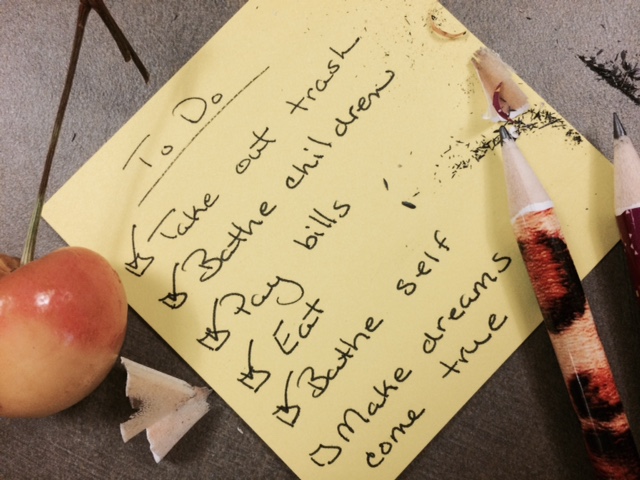 To Do
☑ Take out trash
☑ Bathe children
☑ Pay bills
☑ Eat
☑ Bathe self
☐ Make dreams
come true